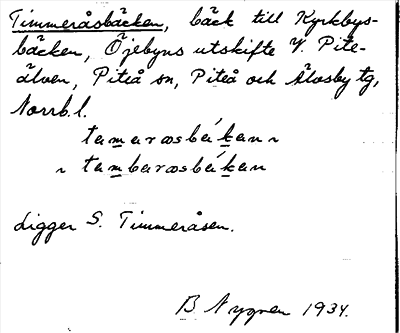 Timmeråsbäcken, bäck till Kyrkbys-
bäcken, Öjebyns utskifte V. Pite-
älven, Piteå sn, Piteå och Älvsby tg,
Norrb. l.
tamaråsbäkan ~
~ tambaråsbäkan
Ligger S. Timmeråsen.
B Nygren 1934.